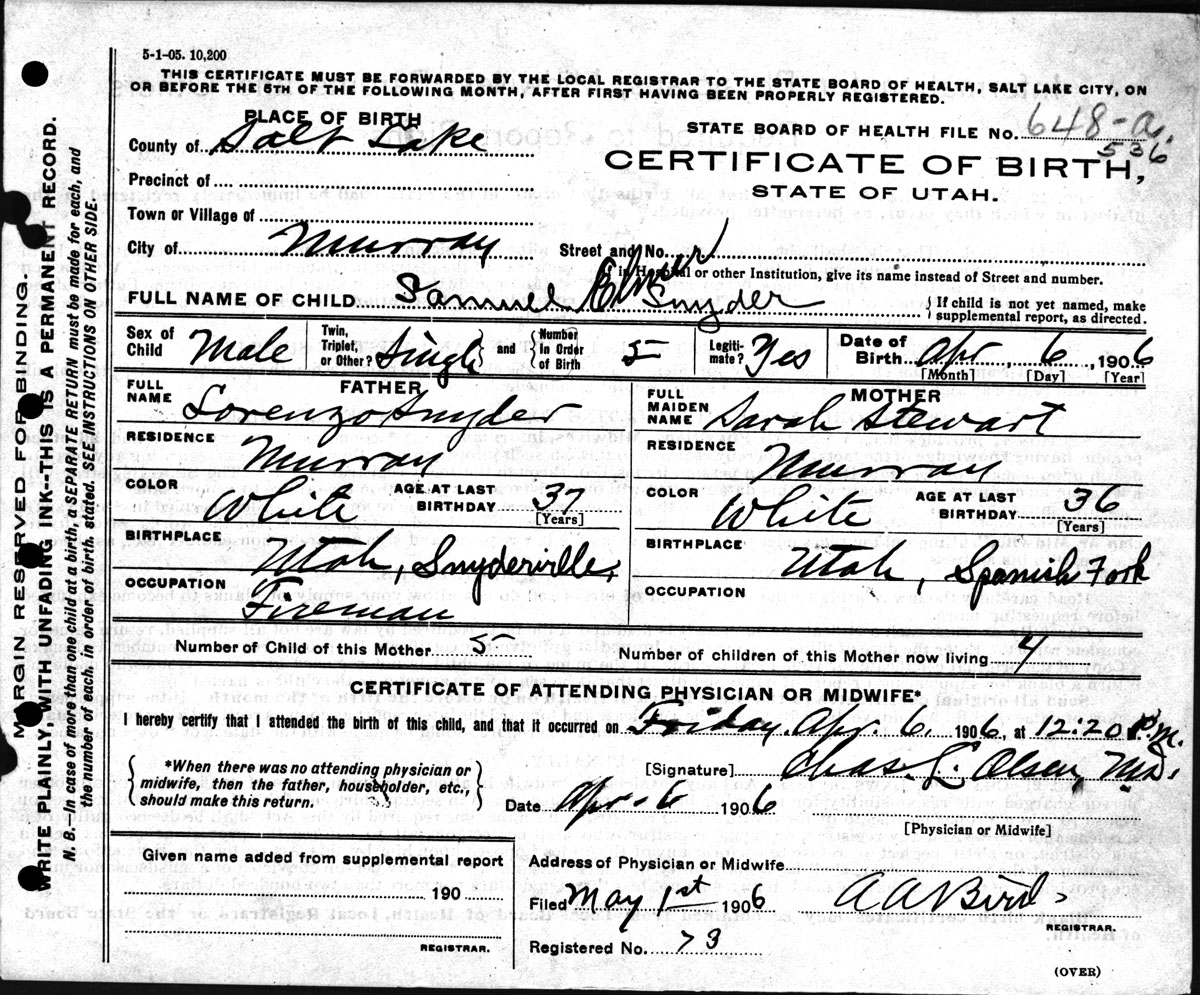 5-1-05. 10,200
THIS CERTIFICATE MUST BE FORWARDED BY THE LOCAL REGISTRAR TO THE STATE BOARD OF HEALTH, SALT LAKE CITY, ON
OR BEFORE THE 5TH OF THE FOLLOWING MONTH, AFTER FIRST HAVING BEEN PROPERLY REGISTERED.
PLACE OF BIRTH
STATE BOARD OF HEALTH FILE NO. 648-a.
536
County of Salt Lake
CERTIFICATE OF BIRTH,
STATE OF UTAH.
Precinct of
Town or Village of
City of Murray Street and No.
If in Hospital or other Institution, give its name instead of Street and number.
FULL NAME OF CHILD Samuel Elmer Snyder { If child is not yet named, make
supplemental report, as directed.
Sex of Child Male Twin, Triplet, or Other? Single and Number In Order of Birth 5 Legiti-mate? Yes Date of Birth Apr, 6, 1906
[Month] [Day] [Year]
FATHER
FULL NAME Lorenzo Snyder
RESIDENCE Murray
COLOR White AGE AT LAST BIRTHDAY 37
[Years]
BIRTHPLACE Utah, Snyderville,
OCCUPATION Fireman
MOTHER
FULL MAIDEN NAME Sarah Stewart
RESIDENCE Murray
COLOR White AGE AT LAST BIRTHDAY 36
[Years]
BIRTHPLACE Utah, Spanish Fork
OCCUPATION
Number of Child of this Mother 5 Number of children of this Mother now living 4
CERTIFICATE OF ATTENDING PHYSICIAN OR MIDWIFE*
I hereby certify that I attended the birth of this child, and that it occurred on Friday Apr. 6, 1906, at 12:20 P.M.
{ *When there was no attending physician or
midwife, then the father, householder, etc.,
should make this return. }
[Signature] Chas. L. Olsen, M.D.
Date Apr-6 1906
[Physician or Midwife]
Given name added from supplemental report
190
REGISTRAR.
Address of Physician or Midwife
Filed May 1st 1906 A A Bird
REGISTRAR.
Registered No. 73
(OVER)
MARGIN RESERVED FOR BINDING.
WRITE PLAINLY, WITH UNFADING INK--THIS IS A PERMANENT RECORD.
N. B.--In case of more than one child at a birth, a SEPARATE RETURN must be made for each, and
the number of each, in order of birth, stated. SEE INSTRUCTIONS ON OTHER SIDE.